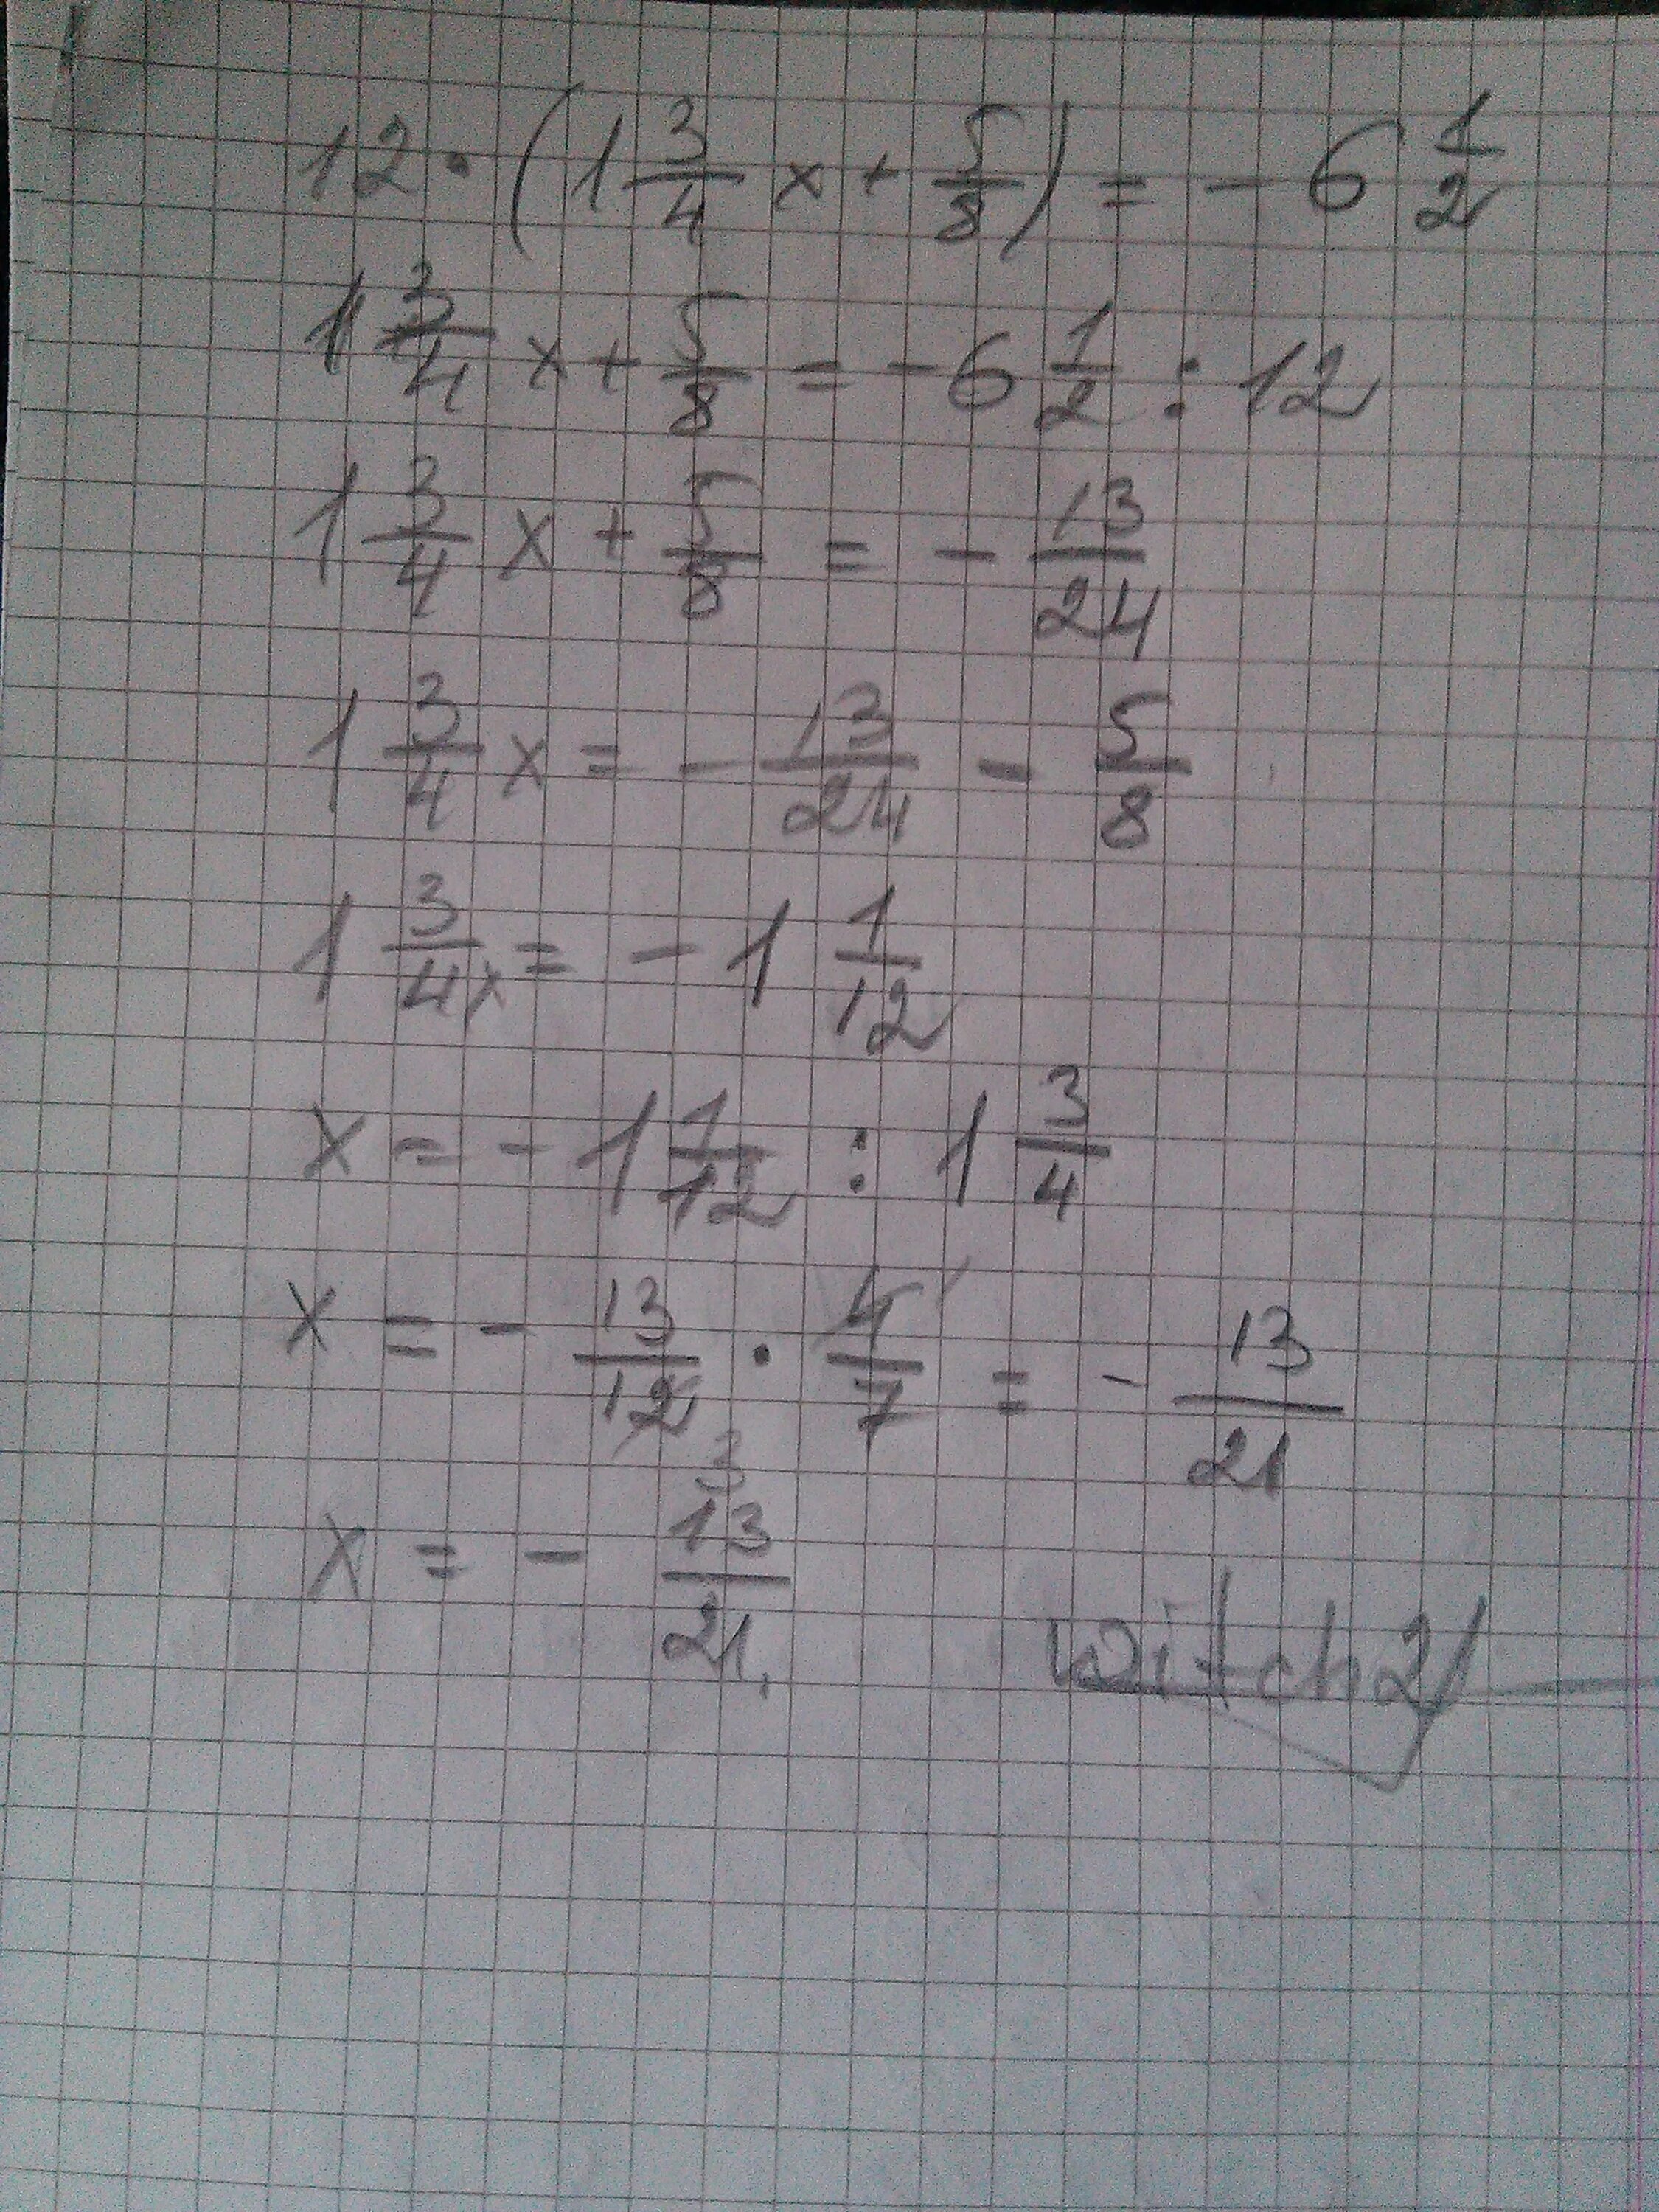 12 · (1 3/4 x + 5/8) = - 6 1/2
1 3/4 x + 5/8 = - 6 1/2 : 12
1 3/4 x + 5/8 = - 13/24
1 3/4 x = - 13/24 - 5/8
1 3/4 x = - 1 1/12
x = - 1 1/12 : 1 3/4
x = - 13/12 · 4/7 = - 13/21
3
x = - 13/21
witch21